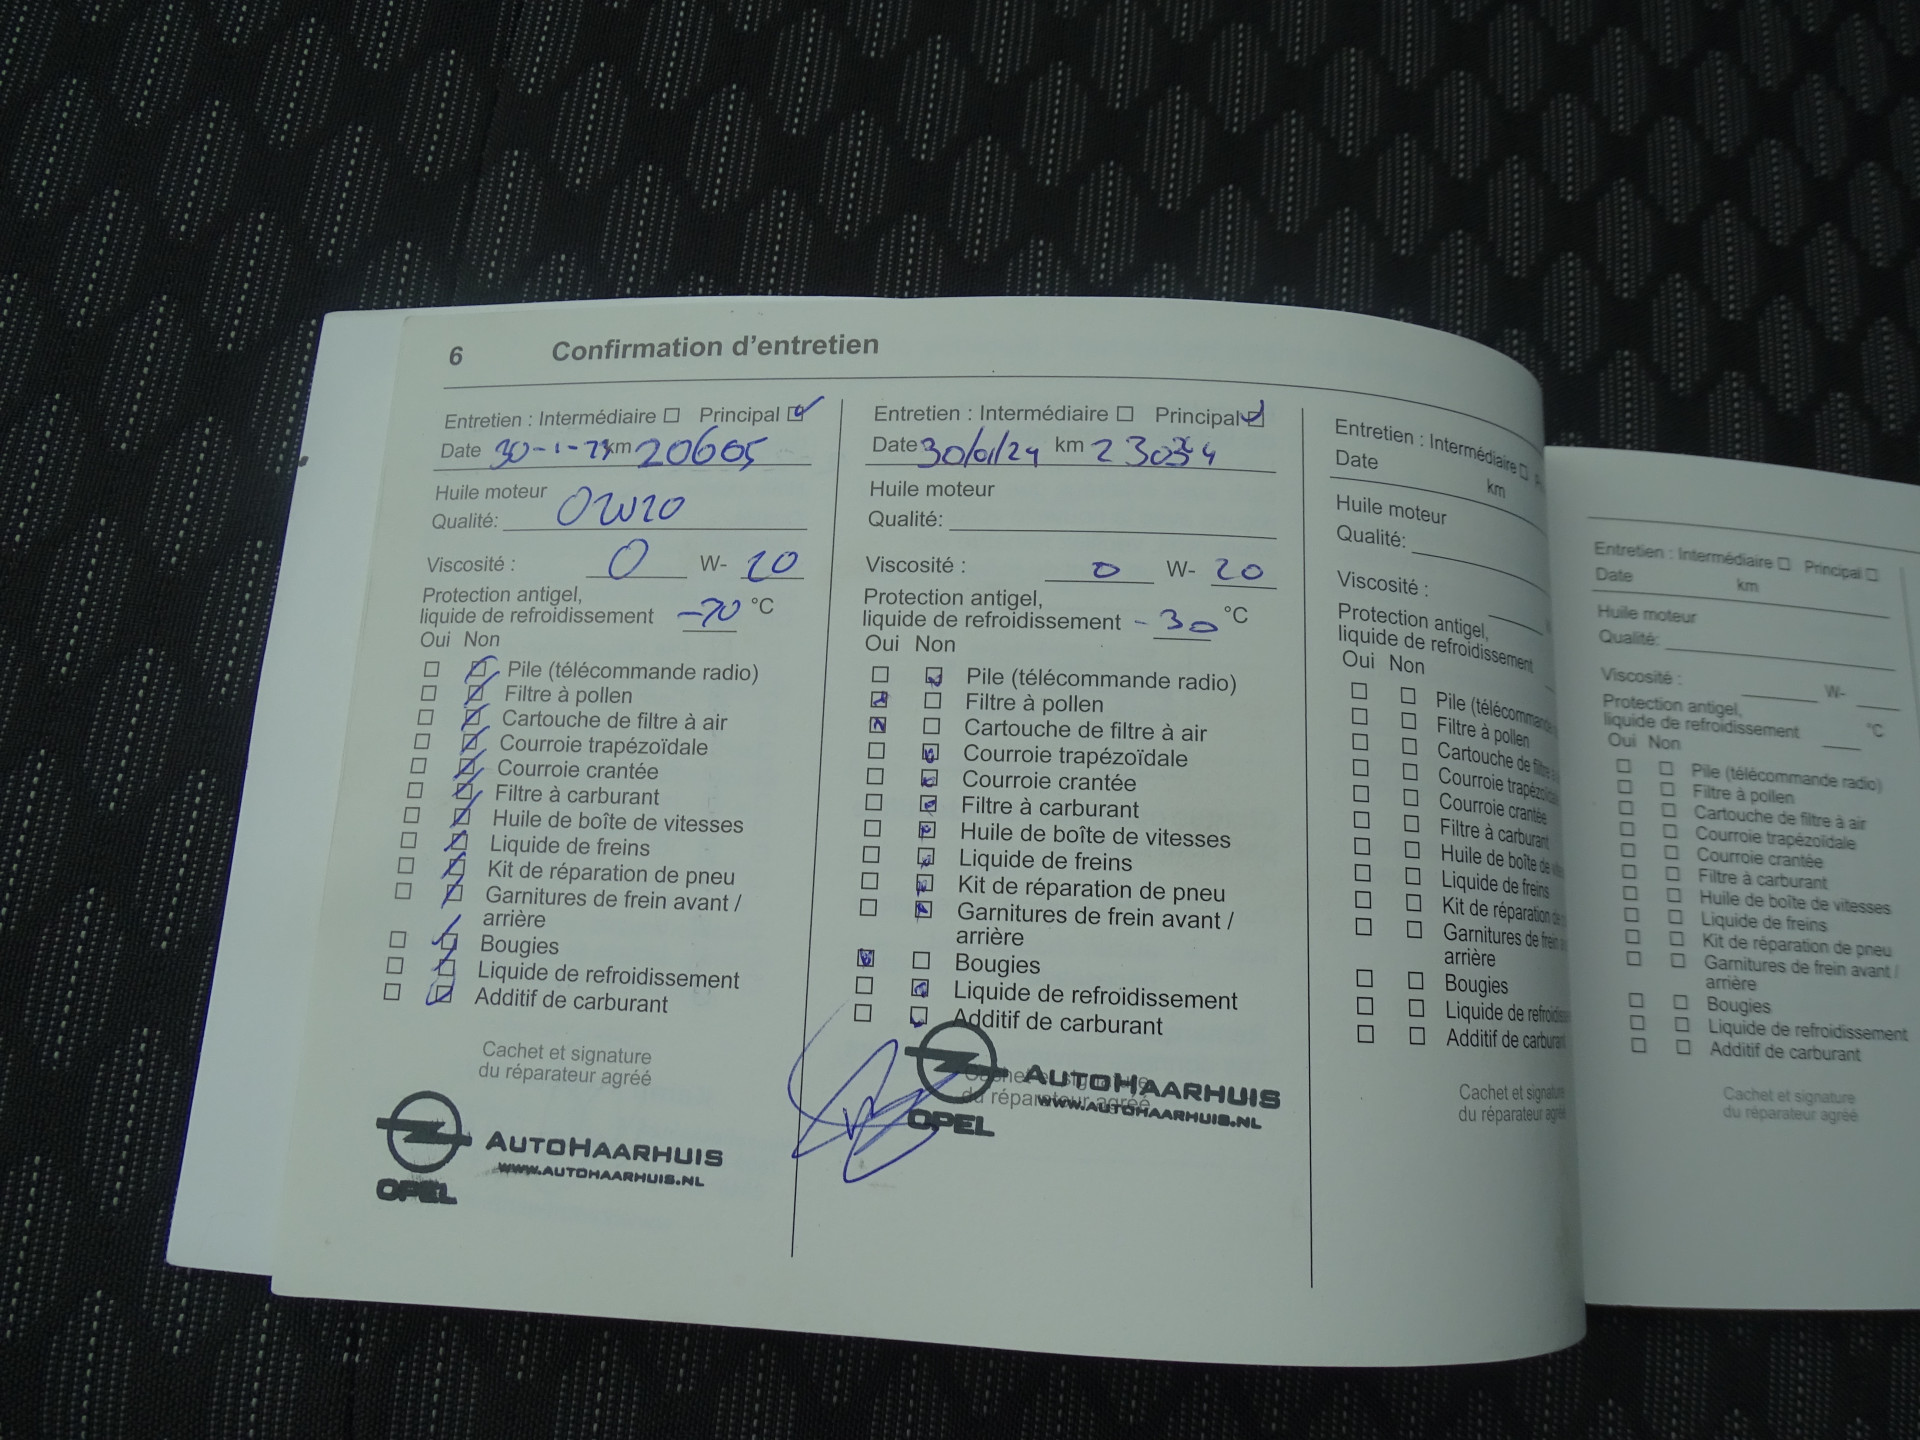 6 Confirmation d'entretien
Entretien : Intermédiaire ☐ Principal ☑
Date 30-1-23 km 20605
Huile moteur
Qualité: 0W20
Viscosité : 0 W- 20
Protection antigel,
liquide de refroidissement °C
Oui Non
☐ ☑ Pile (télécommande radio)
☐ ☑ Filtre à pollen
☐ ☑ Cartouche de filtre à air
☐ ☑ Courroie trapézoïdale
☐ ☑ Courroie crantée
☐ ☑ Filtre à carburant
☐ ☑ Huile de boîte de vitesses
☐ ☑ Liquide de freins
☐ ☑ Kit de réparation de pneu
☐ ☑ Garnitures de frein avant /
arrière
☐ ☑ Bougies
☐ ☑ Liquide de refroidissement
☐ ☑ Additif de carburant
Cachet et signature
du réparateur agréé
AUTOHAARHUIS
WWW.AUTOHAARHUIS.NL
OPEL
Entretien : Intermédiaire ☐ Principal ☑
Date 30/01/24 km
Huile moteur
Qualité:
Viscosité : 0 W- 20
Protection antigel,
liquide de refroidissement -30 °C
Oui Non
☐ ☑ Pile (télécommande radio)
☑ ☐ Filtre à pollen
☑ ☐ Cartouche de filtre à air
☐ ☑ Courroie trapézoïdale
☐ ☑ Courroie crantée
☐ ☑ Filtre à carburant
☐ ☑ Huile de boîte de vitesses
☐ ☑ Liquide de freins
☐ ☑ Kit de réparation de pneu
☐ ☑ Garnitures de frein avant /
arrière
☑ ☐ Bougies
☐ ☑ Liquide de refroidissement
☐ ☑ Additif de carburant
Cachet et signature
du réparateur agréé
AUTOHAARHUIS
WWW.AUTOHAARHUIS.NL
OPEL
Entretien : Intermédiaire ☐
Date km
Huile moteur
Qualité:
Viscosité :
Protection antigel,
liquide de refroidissement
Oui Non
☐ ☐ Pile (télécommande
☐ ☐ Filtre à pollen
☐ ☐ Cartouche de filtre
☐ ☐ Courroie trapézoïdale
☐ ☐ Courroie crantée
☐ ☐ Filtre à carburant
☐ ☐ Huile de boîte de
☐ ☐ Liquide de freins
☐ ☐ Kit de réparation de
☐ ☐ Garnitures de frein
arrière
☐ ☐ Bougies
☐ ☐ Liquide de
☐ ☐ Additif de carburant
Cachet et signature
du réparateur agréé
Entretien : Intermédiaire ☐ Principal ☐
Date km
Huile moteur
Qualité:
Viscosité : W-
Protection antigel,
liquide de refroidissement °C
Oui Non
☐ ☐ Pile (télécommande radio)
☐ ☐ Filtre à pollen
☐ ☐ Cartouche de filtre à air
☐ ☐ Courroie trapézoïdale
☐ ☐ Courroie crantée
☐ ☐ Filtre à carburant
☐ ☐ Huile de boîte de vitesses
☐ ☐ Liquide de freins
☐ ☐ Kit de réparation de pneu
☐ ☐ Garnitures de frein avant /
arrière
☐ ☐ Bougies
☐ ☐ Liquide de refroidissement
☐ ☐ Additif de carburant
Cachet et signature
du réparateur agréé